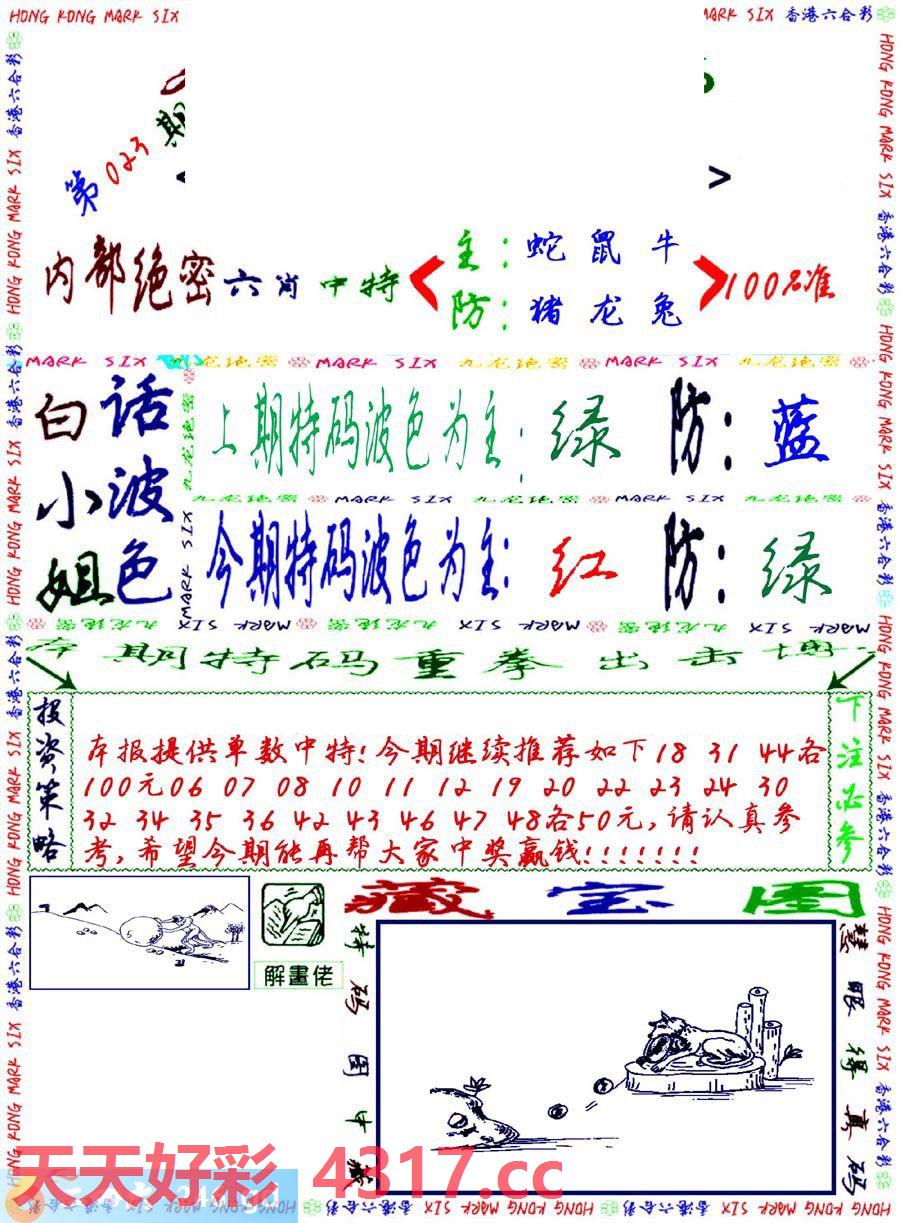 HONG KONG MARK SIX
MARK SIX 香港六合彩
第023期
>
内部绝密六肖中特
主:蛇鼠牛
防:猪龙兔
100%准
MARK SIX 九龙绝密 MARK SIX 九龙绝密 MARK SIX 九龙绝密
白话
小波
姐色
上期特码波色为主:绿 防:蓝
九龙绝密 MARK SIX 九龙绝密 MARK SIX 九龙绝密
今期特码波色为主:红 防:绿
期特码重拳出击
投资策略
本报提供单数中特!今期继续推荐如下18 31 44各
100元06 07 08 10 11 12 19 20 22 23 24 30
32 34 35 36 42 43 46 47 48各50元,请认真参
考,希望今期能再帮大家中奖赢钱!!!!!!!
下注必参
藏宝图
解畫佬
特码图中藏
慧眼得真码
天天好彩 4317.cc